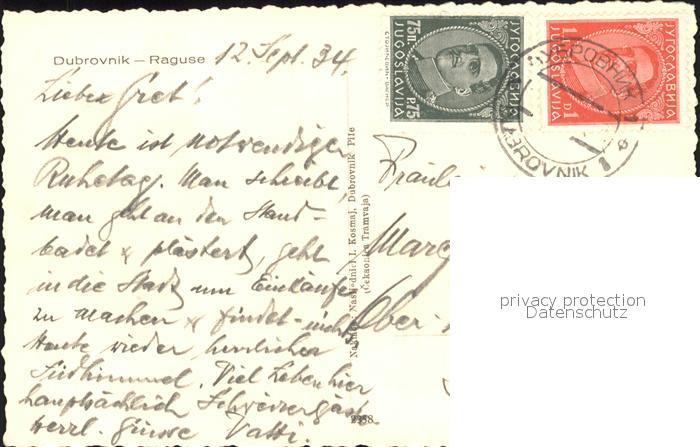 Dubrovnik — Raguse
12 Sept. 34.
Lieber Gret!
Heute ist notwendiger
Ruhetag. Man schreibt,
man geht an den Strand-
badet & plästert, geht
in die Stadt um Einkäufe
zu machen & findet - nichts
Heute wieder herrlicher
Südhimmel. Viel Leben hier
hauptsächlich Schweizergäste
herzl. Grüsse Vatti
75П P.75
ЈУГОСЛАВИЈА
JUGOSLAVIJA
1Д D1
ЈУГОСЛАВИЈА
JUGOSLAVIJA
ДУБРОВНИК
DUBROVNIK 1
Naklada: Nasljednici I. Kosmaj, Dubrovnik Pile
(Čekaonica Tramvaja)
Fräulein
Marg
Ober-
privacy protection
Datenschutz